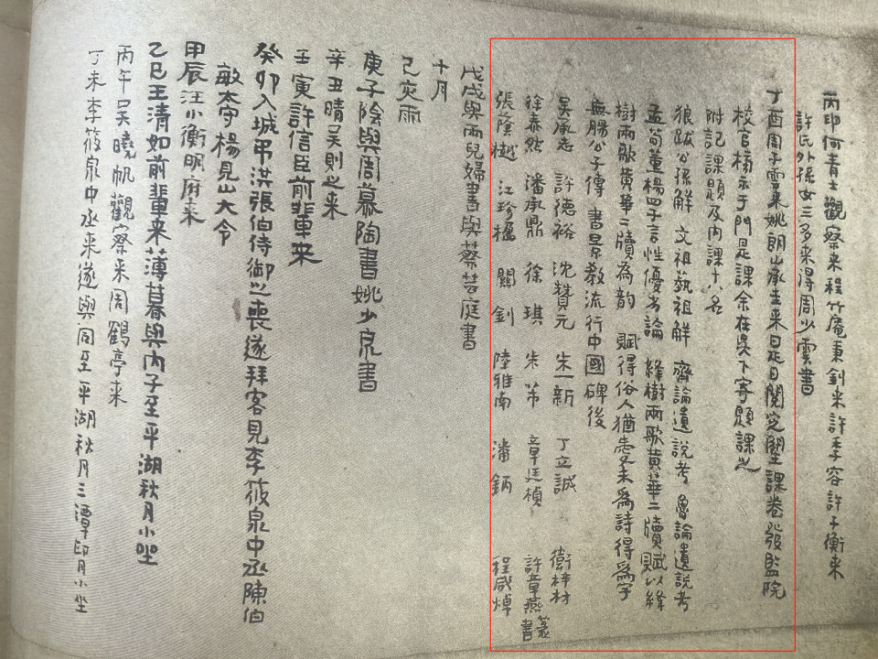 丙申何青士觀察来程竹庵秉釗来許季容許子衡来
許氏外孫女三多来得周少雲書
丁酉周子雲来姚朗山承生来是日閱定塾課卷發監院
校官榜示于門是課余在吳下寄題課之
附記課題及內課十八名
狼跋公孫解 文祖藝祖解 齊論遺說考 魯論遺說考
孟荀董楊四子言性優劣論 絳樹兩歌黃華二牘賦以絳
樹兩歌黃華二牘為韻 賦得俗人猶愛未為詩得為字
無腸公子傳 書景教流行中國碑後
吳承志 許德裕 沈贊元 朱一新 丁立誠 衛梓材
徐泰然 潘鼎 徐琪 朱芾 章廷楨 許章燕篆書
張蔭樾 江珍楹 關釗 陸雅南 潘鈵 程咸焯
戊戌與兩兒婦書與蔡芸庭書
十月
己亥雨
庚子陰與周慕陶書姚少泉書
辛丑晴吳則之来
壬寅許信臣前輩来
癸卯入城弔洪張伯侍御之喪遂拜客見李筱泉中丞陳伯
敏太守楊見山大令
甲辰汪小衡明府来
乙巳王清如前輩来薄暮與內子至平湖秋月小坐
丙午吳曉帆觀察来周鶴亭来
丁未李筱泉中丞来遂與同至平湖秋月三潭印月小坐